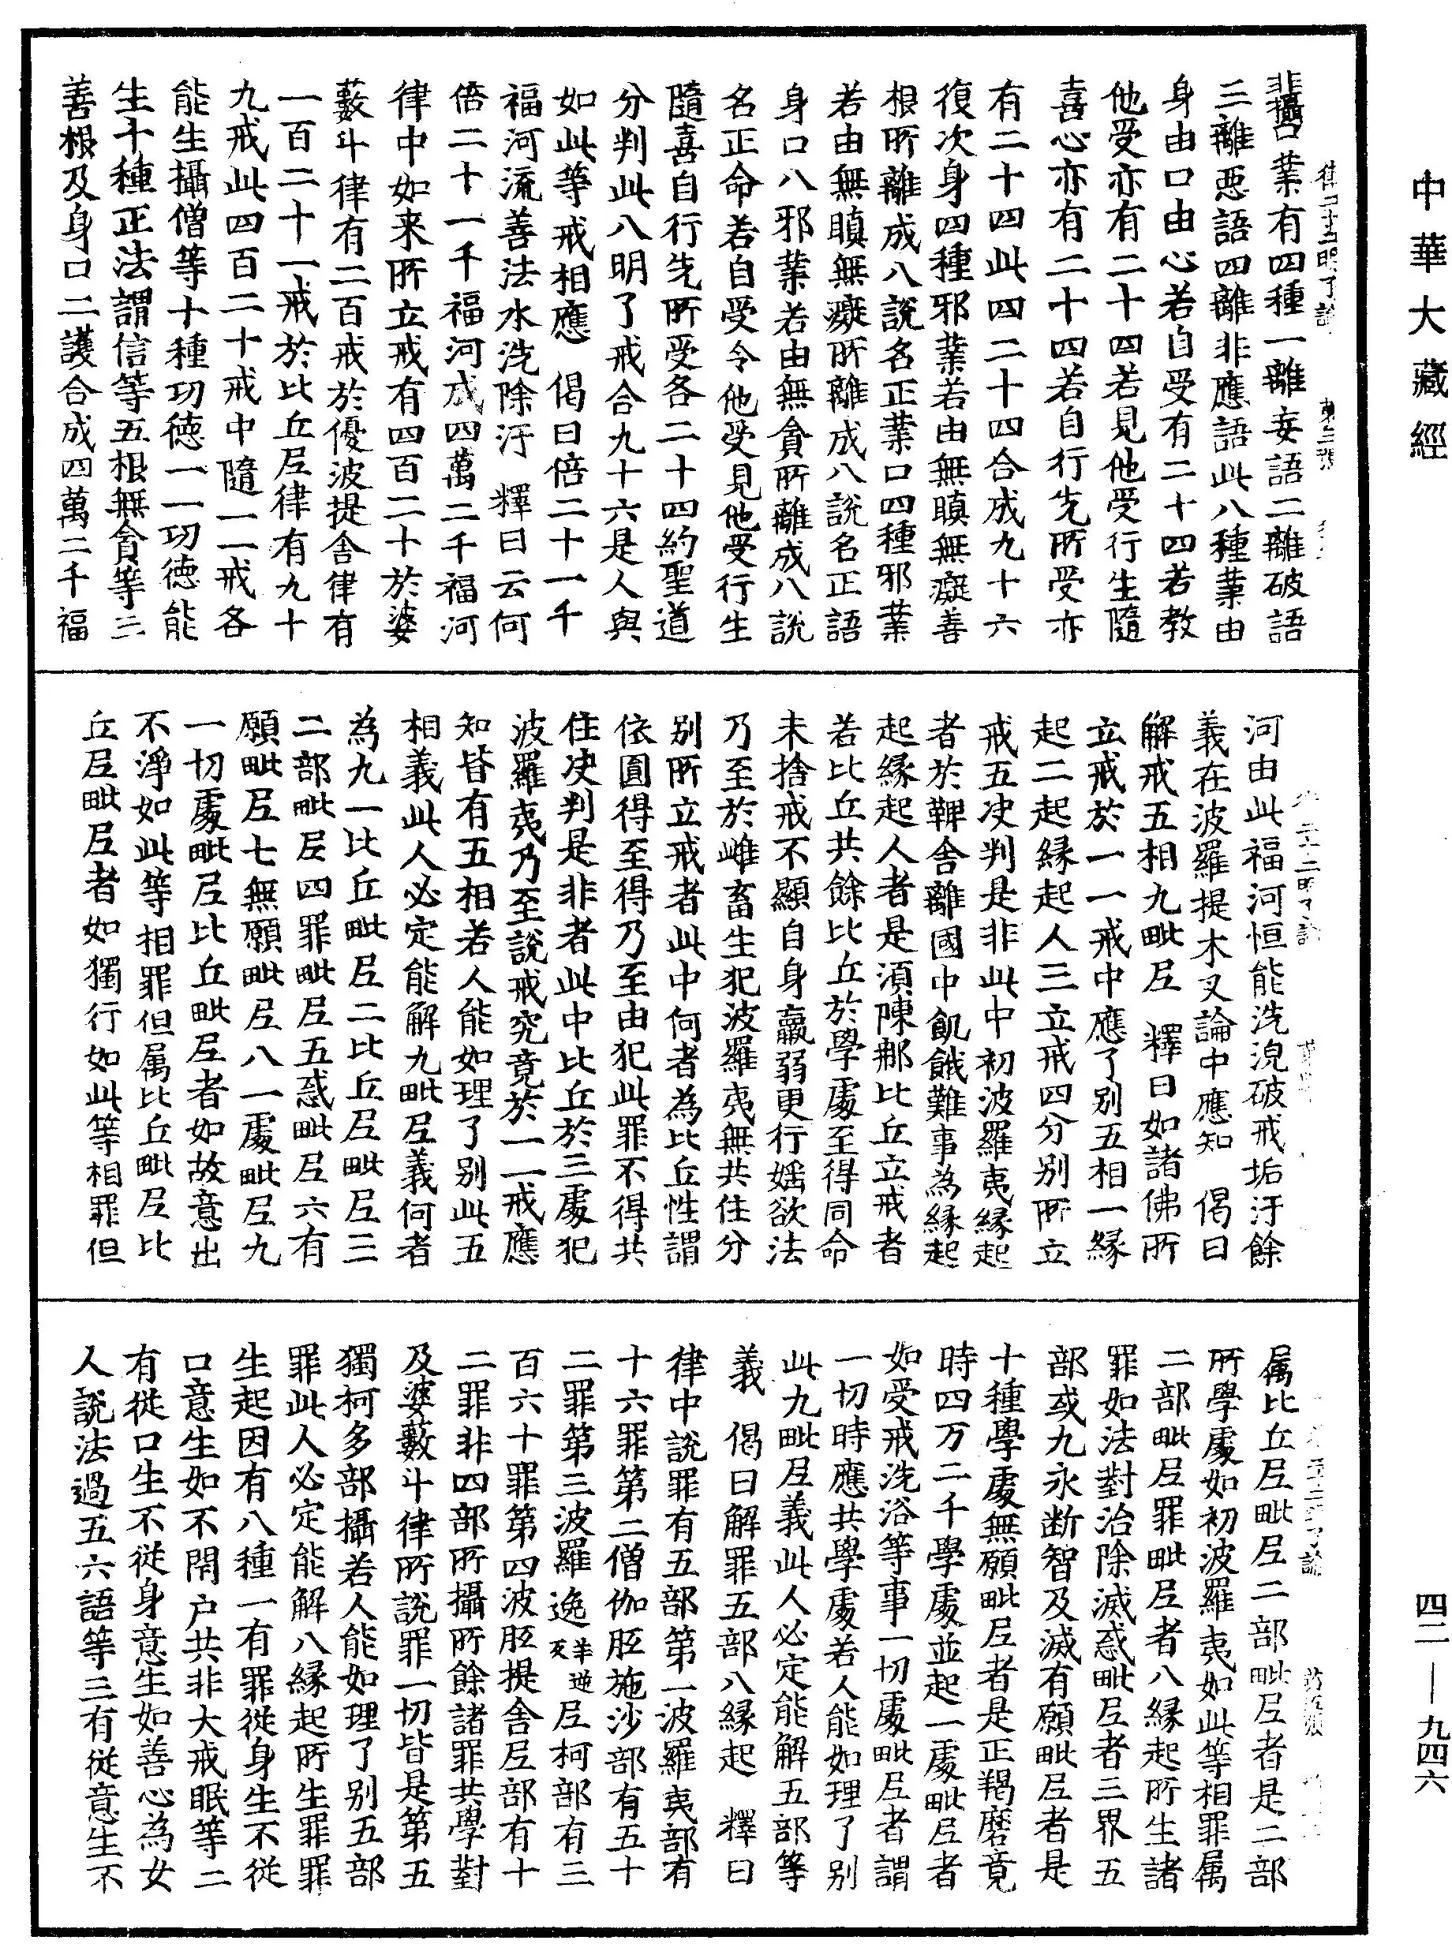 中華大藏經
業有四種一離妄語二離破語
三離惡語四離非應語此八種業由
身由口由心若自受有二十四若教
他受亦有二十四若見他受行生隨
喜心亦有二十四若自行先所受亦
有二十四此四二十四合成九十六
復次身四種邪業若由無瞋無癡善
根所離成八說名正業口四種邪業
若由無瞋無癡所離成八說名正語
身口八邪業若由無貪所離成八說
名正命若自受令他受見他受行生
隨喜自行先所受各二十四約聖道
分判此八明了戒合九十六是人與
如此等戒相應　偈曰倍二十一千
福河流善法水洗除汙　釋曰云何
倍二十一千福河成四萬二千福河
律中如来所立戒有四百二十於婆
藪斗律有二百戒於優波提舍律有
一百二十一戒於比丘尼律有九十
九戒此四百二十戒中隨一一戒各
能生攝僧等十種功德一一功德能
生十種正法謂信等五根無貪等三
善根及身口二護合成四萬二千福
河由此福河恒能洗浣破戒垢汙餘
義在波羅提木叉論中應知　偈曰
解戒五相九毗尼　釋曰如諸佛所
立戒於一一戒中應了別五相一緣
起二起緣起人三立戒四分別所立
戒五决判是非此中初波羅夷緣起
者於鞞舍離國中飢餓難事為緣起
起緣起人者是須陳那比丘立戒者
若比丘共餘比丘於學處至得同命
未捨戒不顯自身羸弱更行婬欲法
乃至於雌畜生犯波羅夷無共住分
別所立戒者此中何者為比丘性謂
依圓得至得乃至由犯此罪不得共
住决判是非者此中比丘於三處犯
波羅夷乃至說戒究竟於一一戒應
知皆有五相若人能如理了別此五
相義此人必定能解九毗尼義何者
為九一比丘毗尼二比丘尼毗尼三
二部毗尼四罪毗尼五惑毗尼六有
願毗尼七無願毗尼八一處毗尼九
一切處毗尼比丘毗尼者如故意出
不淨如此等相罪但属比丘毗尼比
丘尼毗尼者如獨行如此等相罪但
属比丘尼毗尼二部毗尼者是二部
所學處如初波羅夷如此等相罪属
二部毗尼罪毗尼者八緣起所生諸
罪如法對治除滅惑毗尼者三界五
部或九永断智及滅有願毗尼者是
十種學處無願毗尼者是正羯磨竟
時四万二千學處並起一處毗尼者
如受戒洗浴等事一切處毗尼者謂
一切時應共學處若人能如理了別
此九毗尼義此人必定能解五部等
義　偈曰解罪五部八緣起　釋曰
律中說罪有五部第一波羅夷部有
十六罪第二僧伽胝施沙部有五十
二罪第三波羅逸尼柯部有三
百六十罪第四波胝提舍尼部有十
二罪非四部所攝所餘諸罪共學對
及婆藪斗律所說罪一切皆是第五
獨柯多部攝若人能如理了別五部
罪此人必定能解八緣起所生罪罪
生起因有八種一有罪從身生不從
口意生如不閇户共非大戒眠等二
有從口生不從身意生如善心為女
人說法過五六語等三有從意生不
四二—九四六